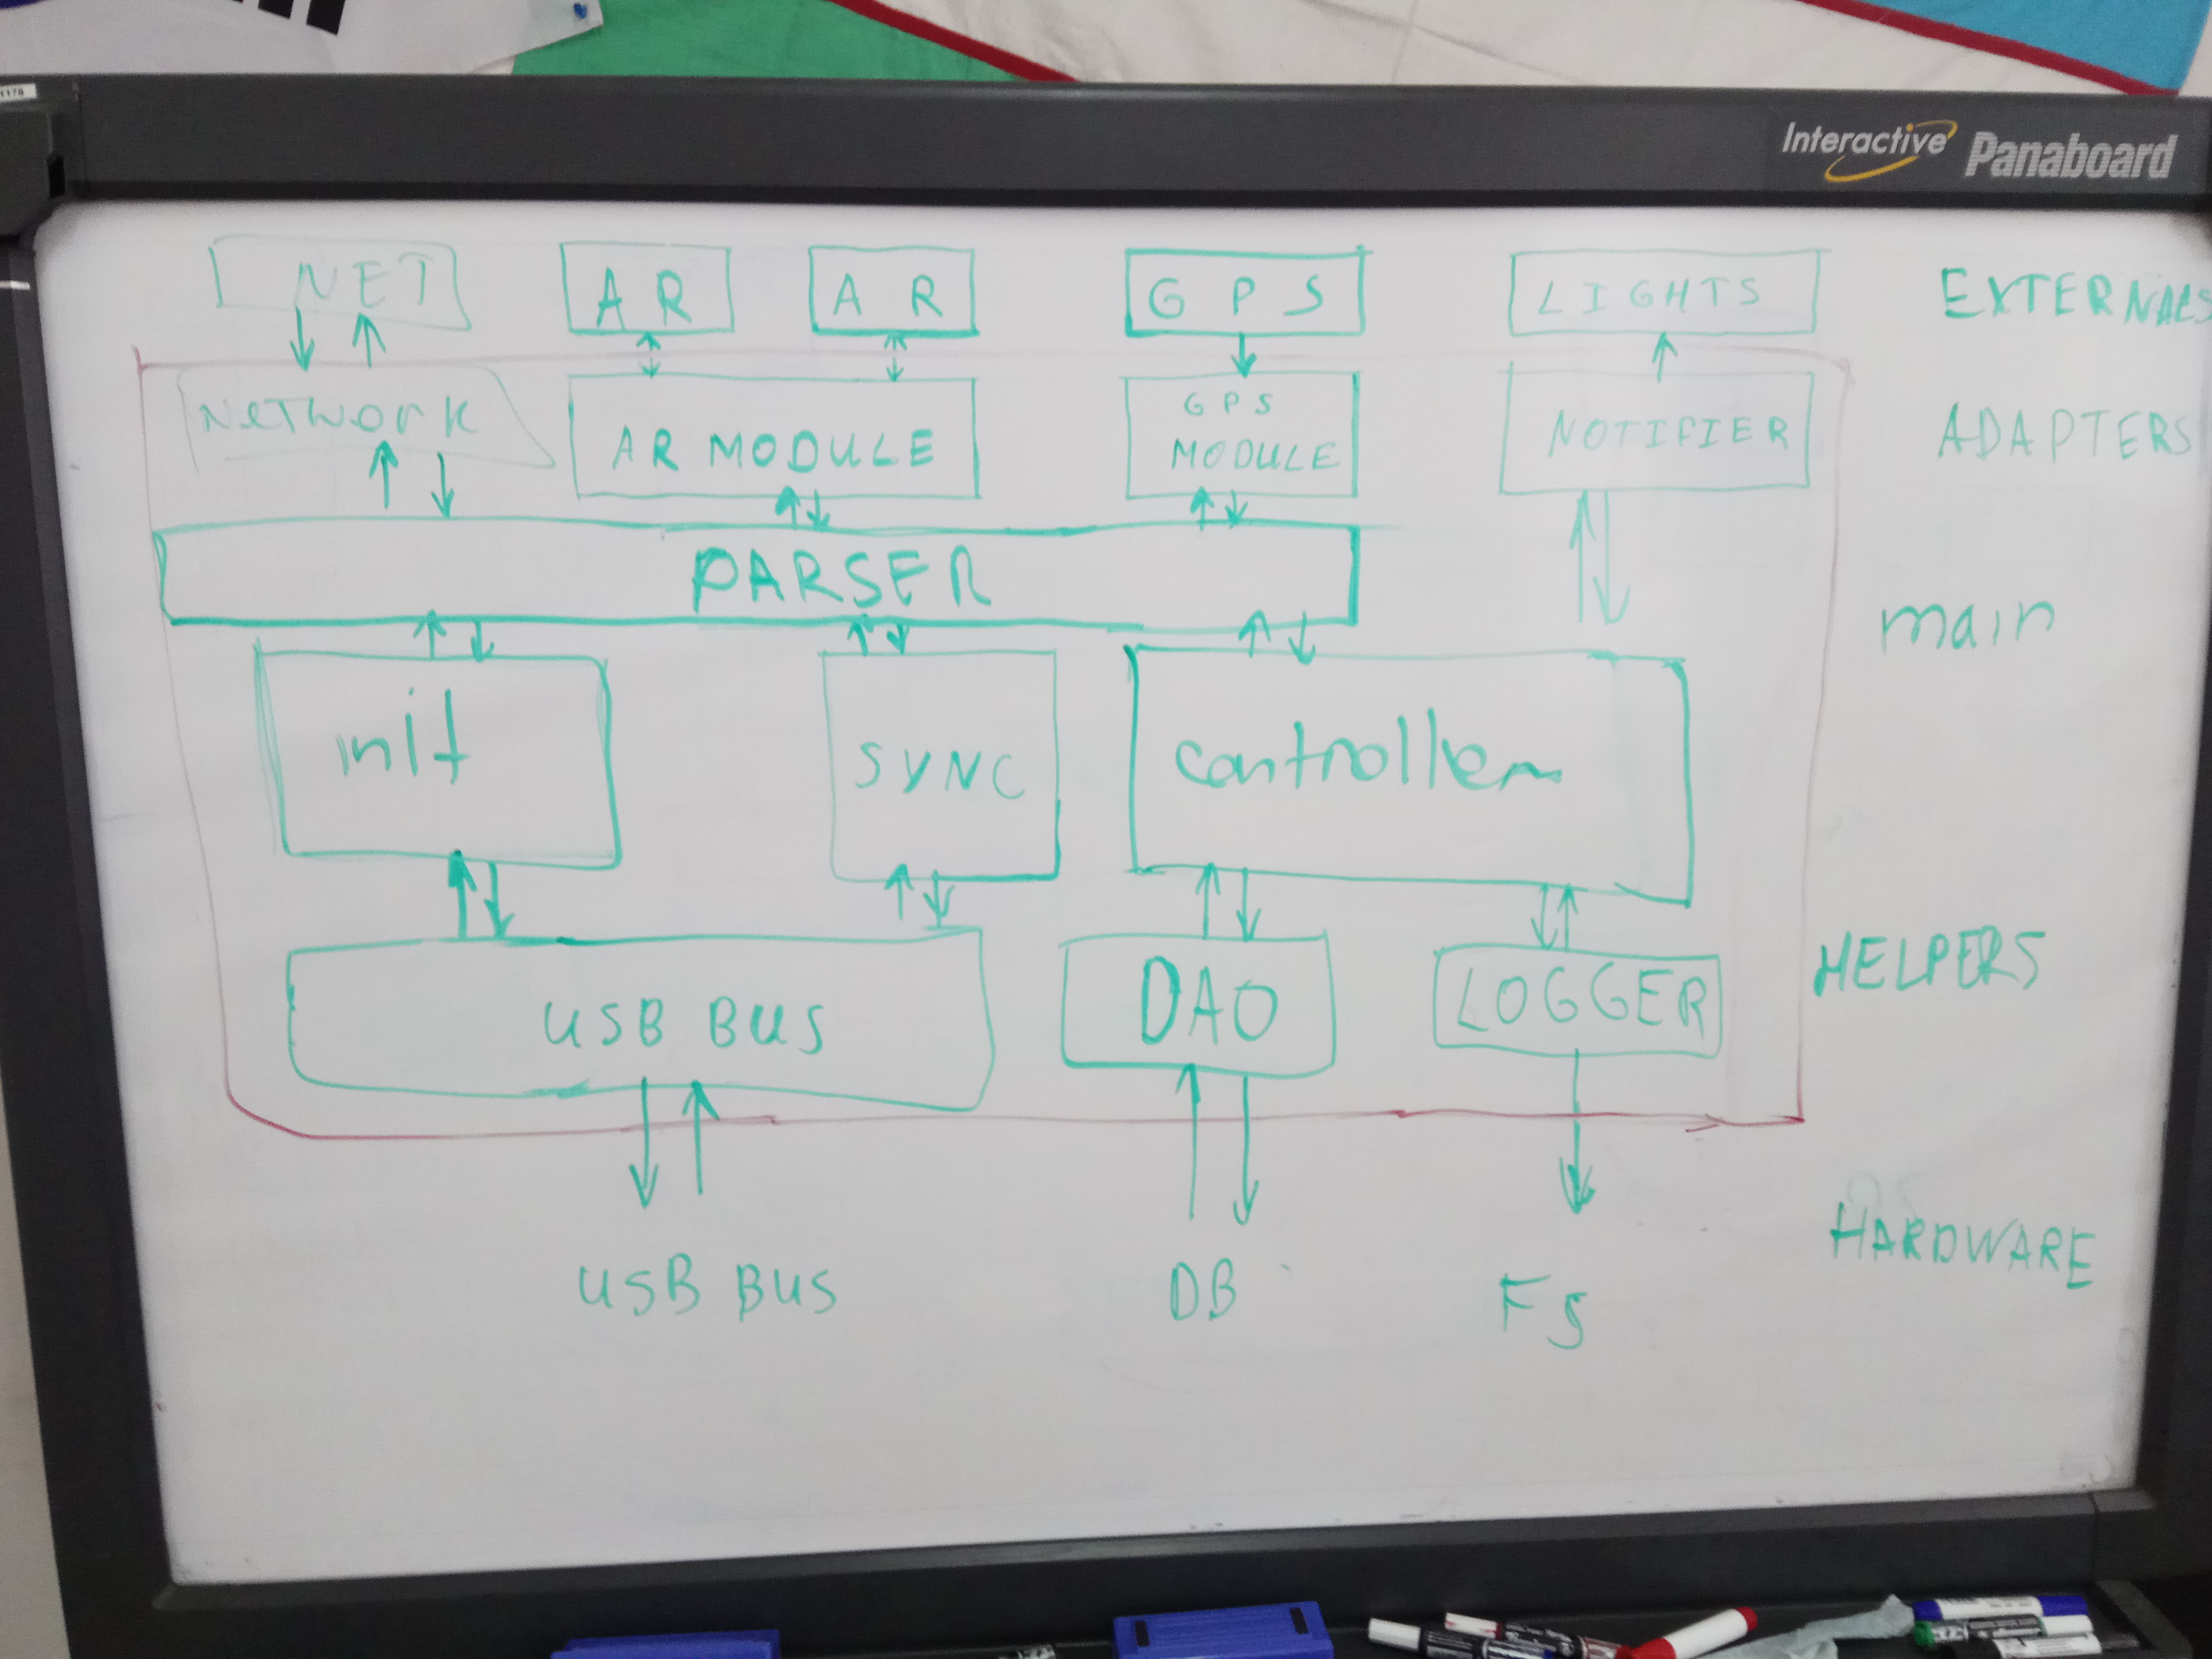 1178
Interactive Panaboard
NET
AR
AR
GPS
LIGHTS
EXTERNALS
NETWORK
AR MODULE
GPS
MODULE
NOTIFIER
ADAPTERS
PARSER
main
init
SYNC
controller
USB BUS
DAO
LOGGER
HELPERS
HARDWARE
USB BUS
DB
FS